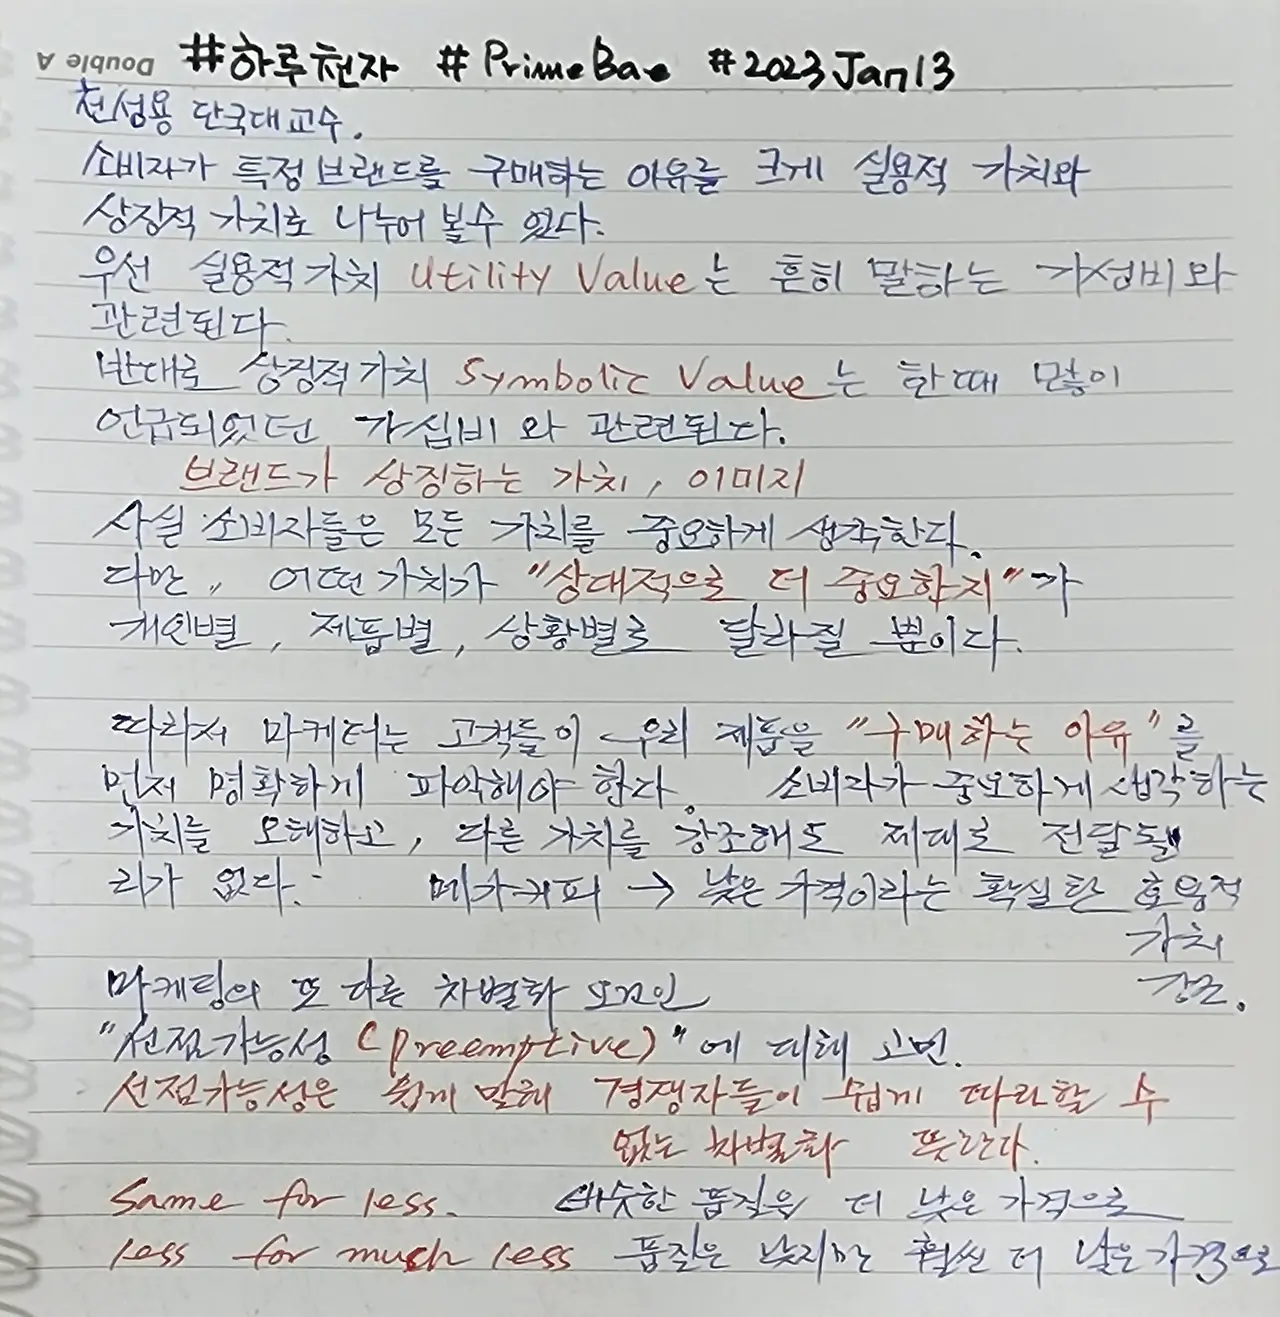 Double A
#하루천자 #PrimeBae #2023Jan13
천성용 단국대교수.
소비자가 특정브랜드를 구매하는 이유를 크게 실용적 가치와
상징적 가치로 나누어 볼수 있다.
우선 실용적가치 Utility Value는 흔히 말하는 가성비와
관련된다.
반대로 상징적가치 Symbolic Value는 한때 많이
언급되었던 가심비와 관련된다.
브랜드가 상징하는 가치, 이미지
사실 소비자들은 모든 가치를 중요하게 생각한다.
다만, 어떤가치가 "상대적으로 더 중요한지"가
개인별, 제품별, 상황별로 달라질 뿐이다.
따라서 마케터는 고객들이 우리 제품을 "구매하는 이유"를
먼저 명확하게 파악해야 한다. 소비자가 중요하게 생각하는
가치를 오해하고, 다른 가치를 강조해도 제대로 전달될
리가 없다. 메가커피 → 낮은 가격이라는 확실한 효용적
가치
강조.
마케팅의 또 다른 차별화 요인
"선점가능성 (preemptive)"에 대해 고민.
선점가능성은 쉽게 말해 경쟁자들이 쉽게 따라할 수
없는 차별화 뜻한다.
Same for less. 비슷한 품질을 더 낮은 가격으로
less for much less 품질은 낮지만 훨씬 더 낮은가격으로